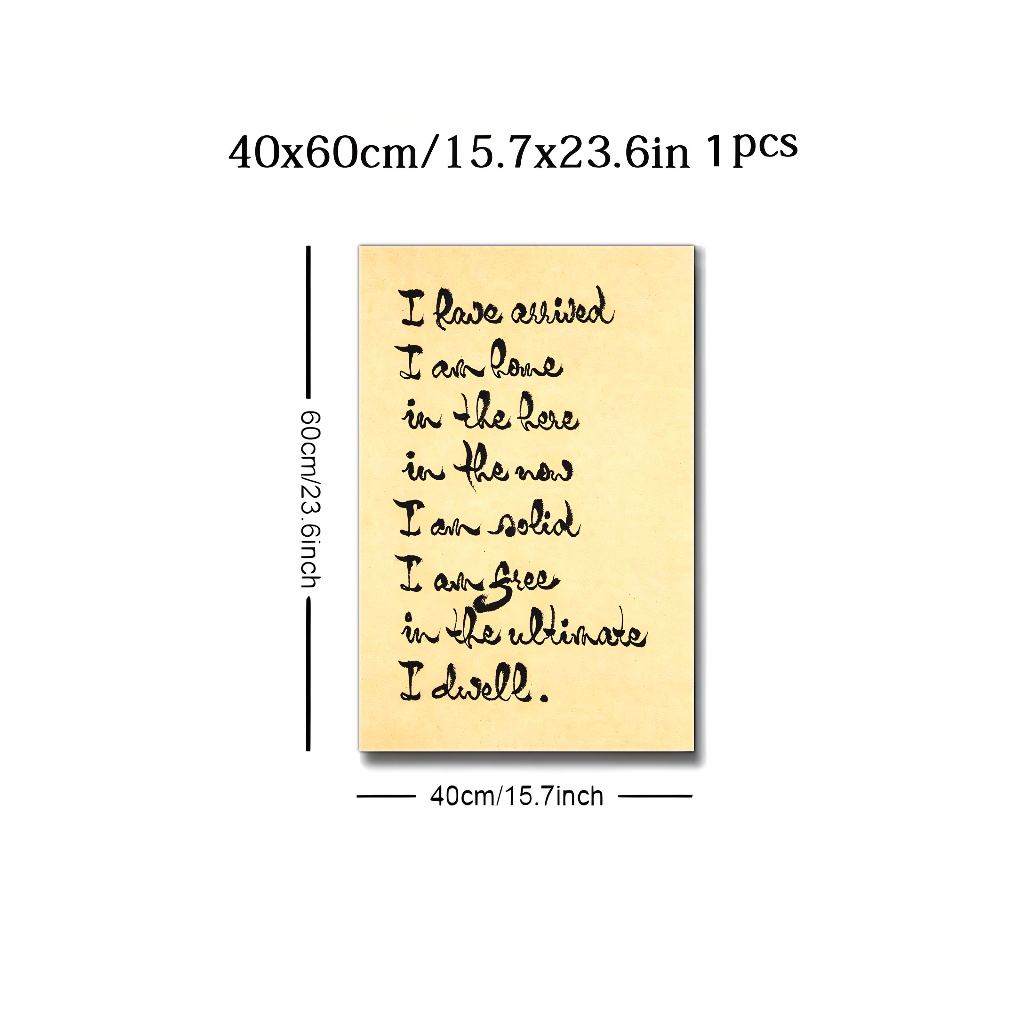 40x60cm/15.7x23.6in 1pcs
60cm/23.6inch
I have arrived
I am home
in the here
in the now
I am solid
I am free
in the ultimate
I dwell.
40cm/15.7inch